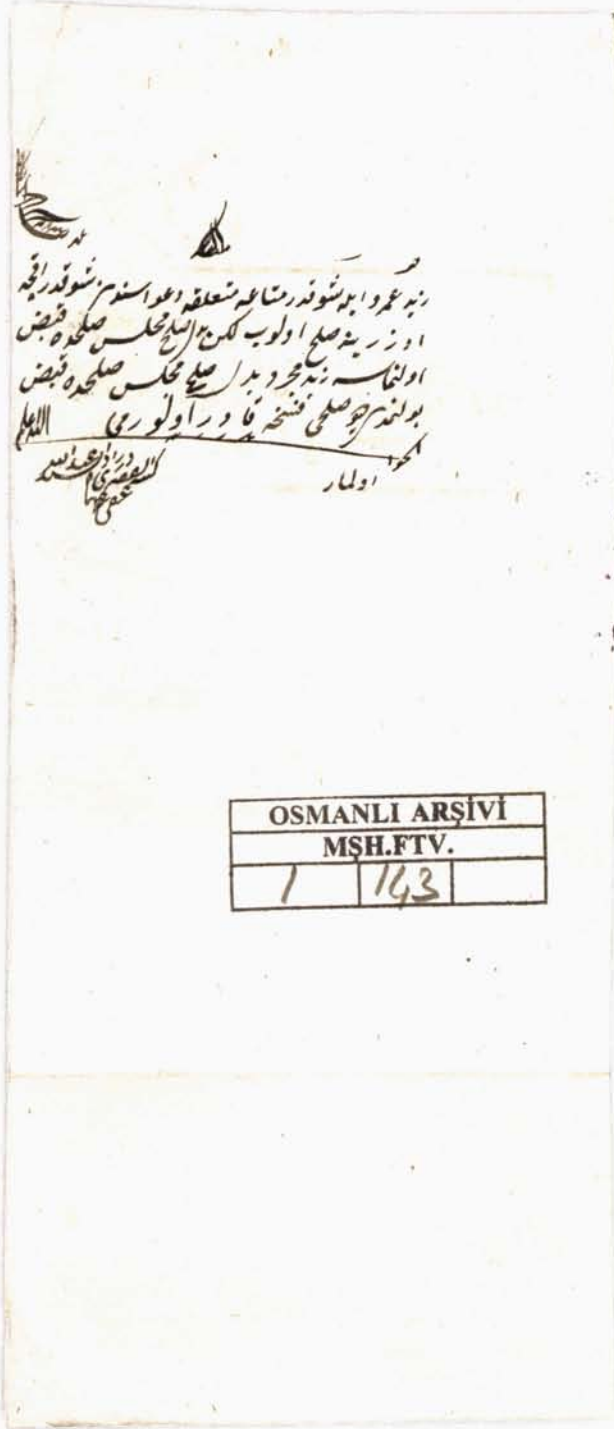 زيد عمرو ايله شو قدر متاعه متعلقه دعواسندن شو قدر اقچه
اوزرينه صلح اولوب لكن بدل صلح مجلس صلحده قبض
اولنماسه زيد مجرد بدل صلح مجلس صلحده قبض
بولنمدى ديو صلحى فسخه قادر اولورمى الله اعلم
الجواب
اولماز
كتبه الفقير
عفى عنهما
OSMANLI ARŞİVİ
MŞH.FTV.
1 143